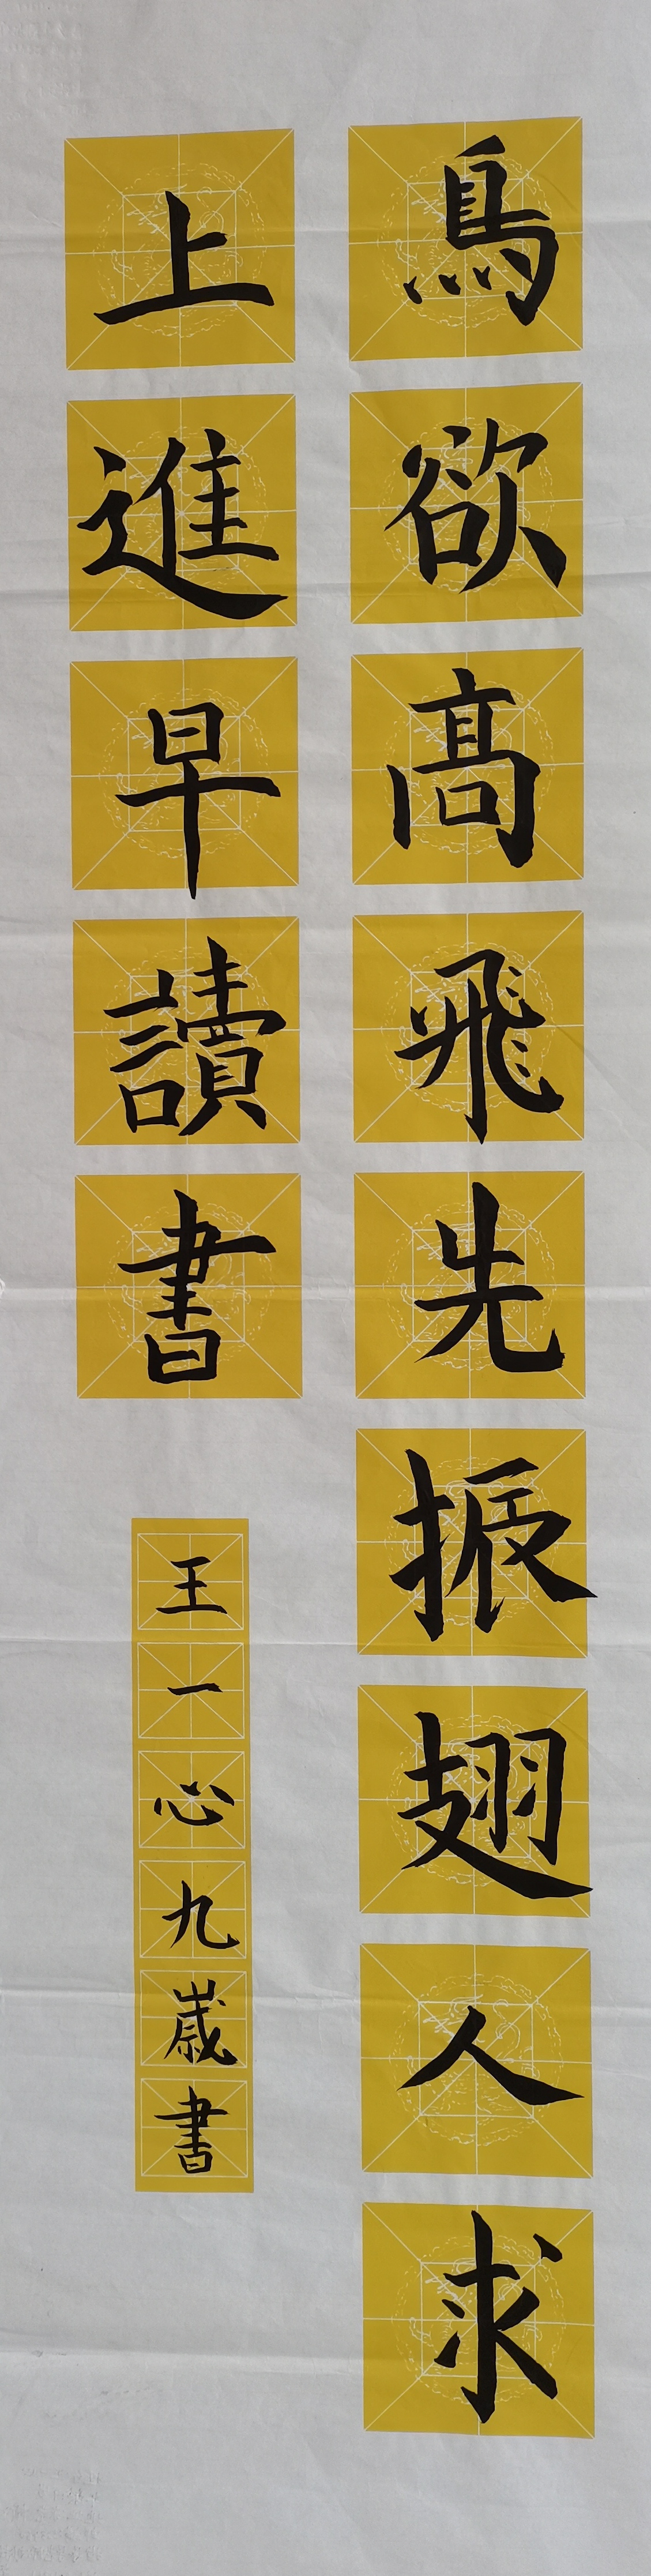 鳥欲高飛先振翅人求
上進早讀書
王一心九歲書